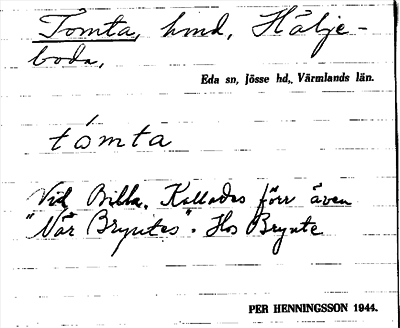 Tomta, hmd, Hälje-
boda,
Eda sn, Jösse hd,, Värmlands län.
tómta
Vid Billa. Kallades förr även
"När Bryntes". Hos Brynte
PER HENNINGSSON 1944.